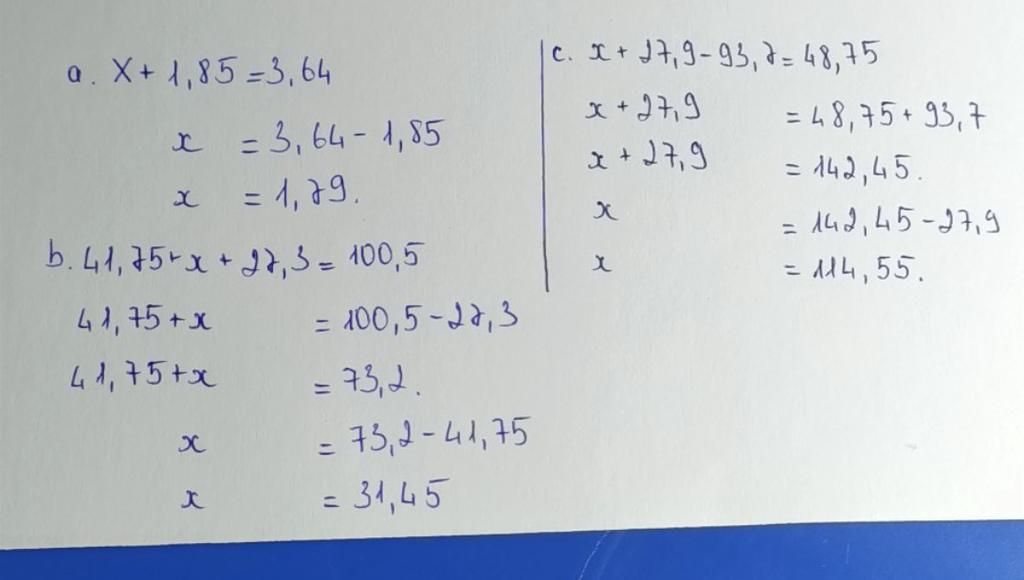 a. X + 1,85 = 3,64
x = 3,64 - 1,85
x = 1,79.
b. 41,75 + x + 27,3 = 100,5
41,75 + x = 100,5 - 27,3
41,75 + x = 73,2.
x = 73,2 - 41,75
x = 31,45
c. x + 27,9 - 93,7 = 48,75
x + 27,9 = 48,75 + 93,7
x + 27,9 = 142,45.
x = 142,45 - 27,9
x = 114,55.